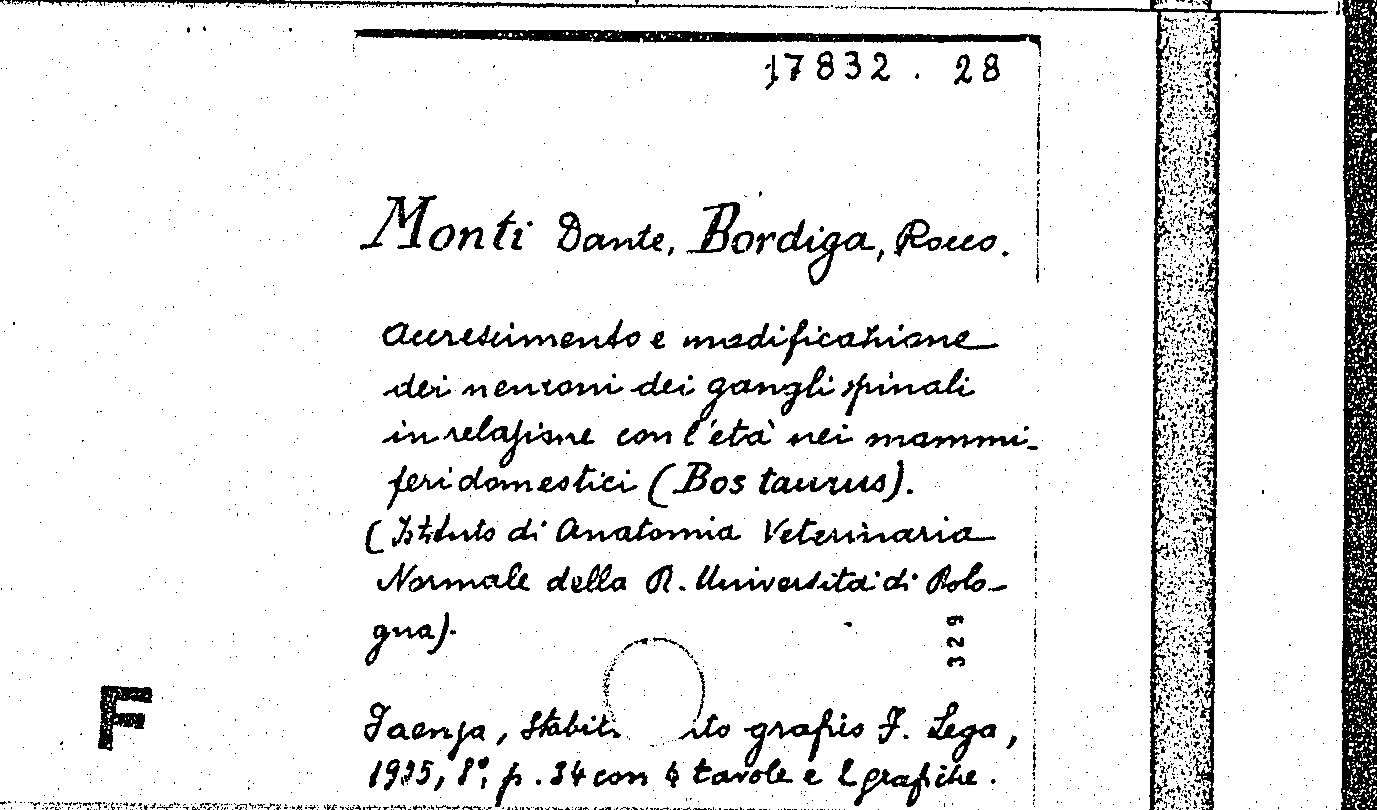 17832 . 28
Monti Dante, Bordiga, Rocco.
Accrescimento e modificazione
dei neuroni dei gangli spinali
in relazione con l'età nei mammi-
feri domestici (Bos taurus).
(Istituto di Anatomia Veterinaria
Normale della R. Università di Bolo-
gna).
329
Faenza, Stabili ito grafico F. Lega,
1935, 8°, p. 34 con 4 tavole e 2 grafiche.
F